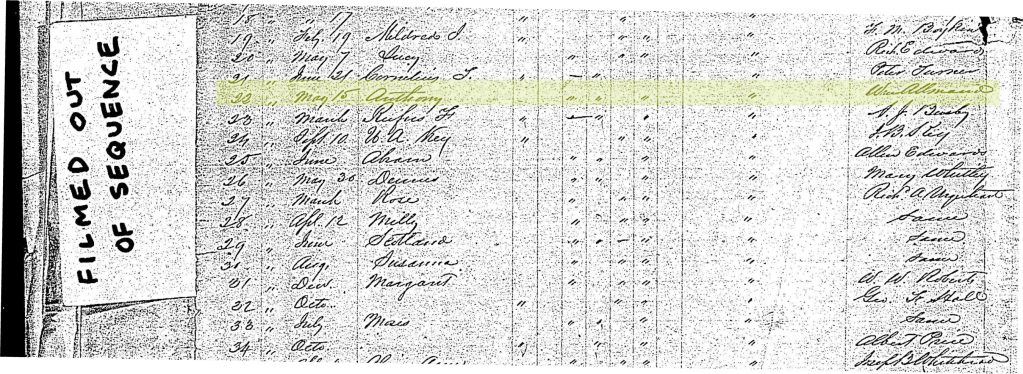 FILMED OUT
OF SEQUENCE
18 " " 17 "
19 " Feby 19 Mildred J. " " " " F. M. Boykin
20 " May 7 Lucy " " " " Rich Edwards
21 " June 21 Cornelius T. " " " Peter Turner
22 " May 15 Anthony " " " " Wm Allmand
23 " March Rufus H " " " " A. J. Busby
24 " Sept. 10 W. A. Key " " " " J. B. Key
25 " June Abram " " " " Allen Edwards
26 " May 30 Dennis " " " " Mary Whitley
27 " March Rose " " " " Rich. A.
28 " Apl. 12 Milly " " " " Same
29 " June Scotland " " " " Same
30 " Aug. Susanna " " " " Same
31 " Dec. Margaret " " " " W. W. Roberts
32 " Octo. " " " " Geo. F. Hall
33 " July Moses " " " " Same
34 " Octo. " " " " Albert Price
Josep B. Whitehead